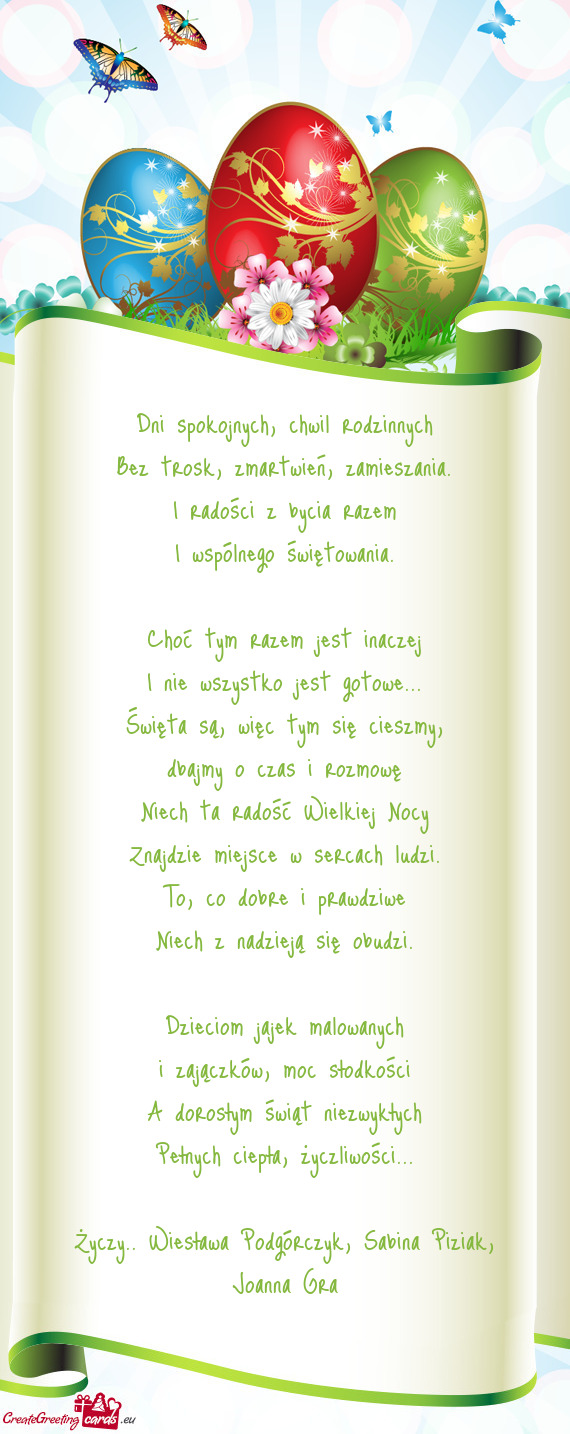 Dni spokojnych, chwil rodzinnych
Bez trosk, zmartwień, zamieszania.
I radości z bycia razem
I wspólnego świętowania.

Choć tym razem jest inaczej
I nie wszystko jest gotowe...
Święta są, więc tym się cieszmy,
dbajmy o czas i rozmowę
Niech ta radość Wielkiej Nocy
Znajdzie miejsce w sercach ludzi.
To, co dobre i prawdziwe
Niech z nadzieją się obudzi.

Dzieciom jajek malowanych
i zajączków, moc słodkości
A dorosłym świąt niezwykłych
Pełnych ciepła, życzliwości...

Życzy.. Wiesława Podgórczyk, Sabina Piziak,
Joanna Gra
CreateGreeting cards .eu